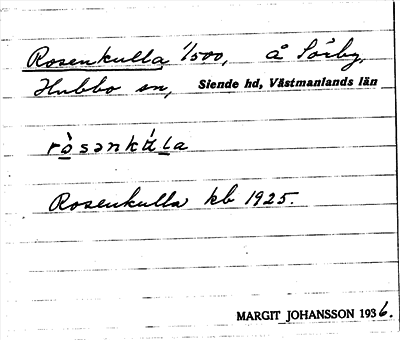 Rosenkulla 1/500, å Sörby,
Hubbo sn, Siende hd, Västmanlands län
rò̲sənkú̲l̲a
Rosenkulla kb 1925.
MARGIT JOHANSSON 1936.